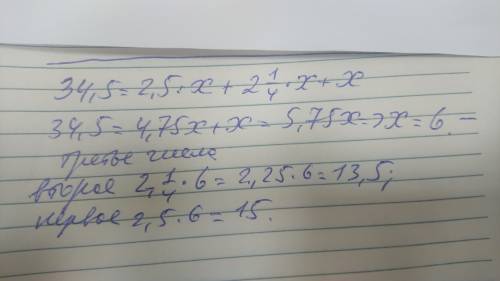 34,5=2,5·x+2 1/4·x+x
34,5=4,75x+x=5,75x=>x=6 –
третье число
второе 2,1/4·6=2,25·6=13,5;
первое 2,5·6=15.